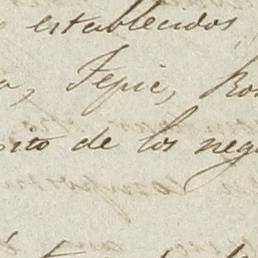 establecidos
a, Tepic, Ro
sito de los neg